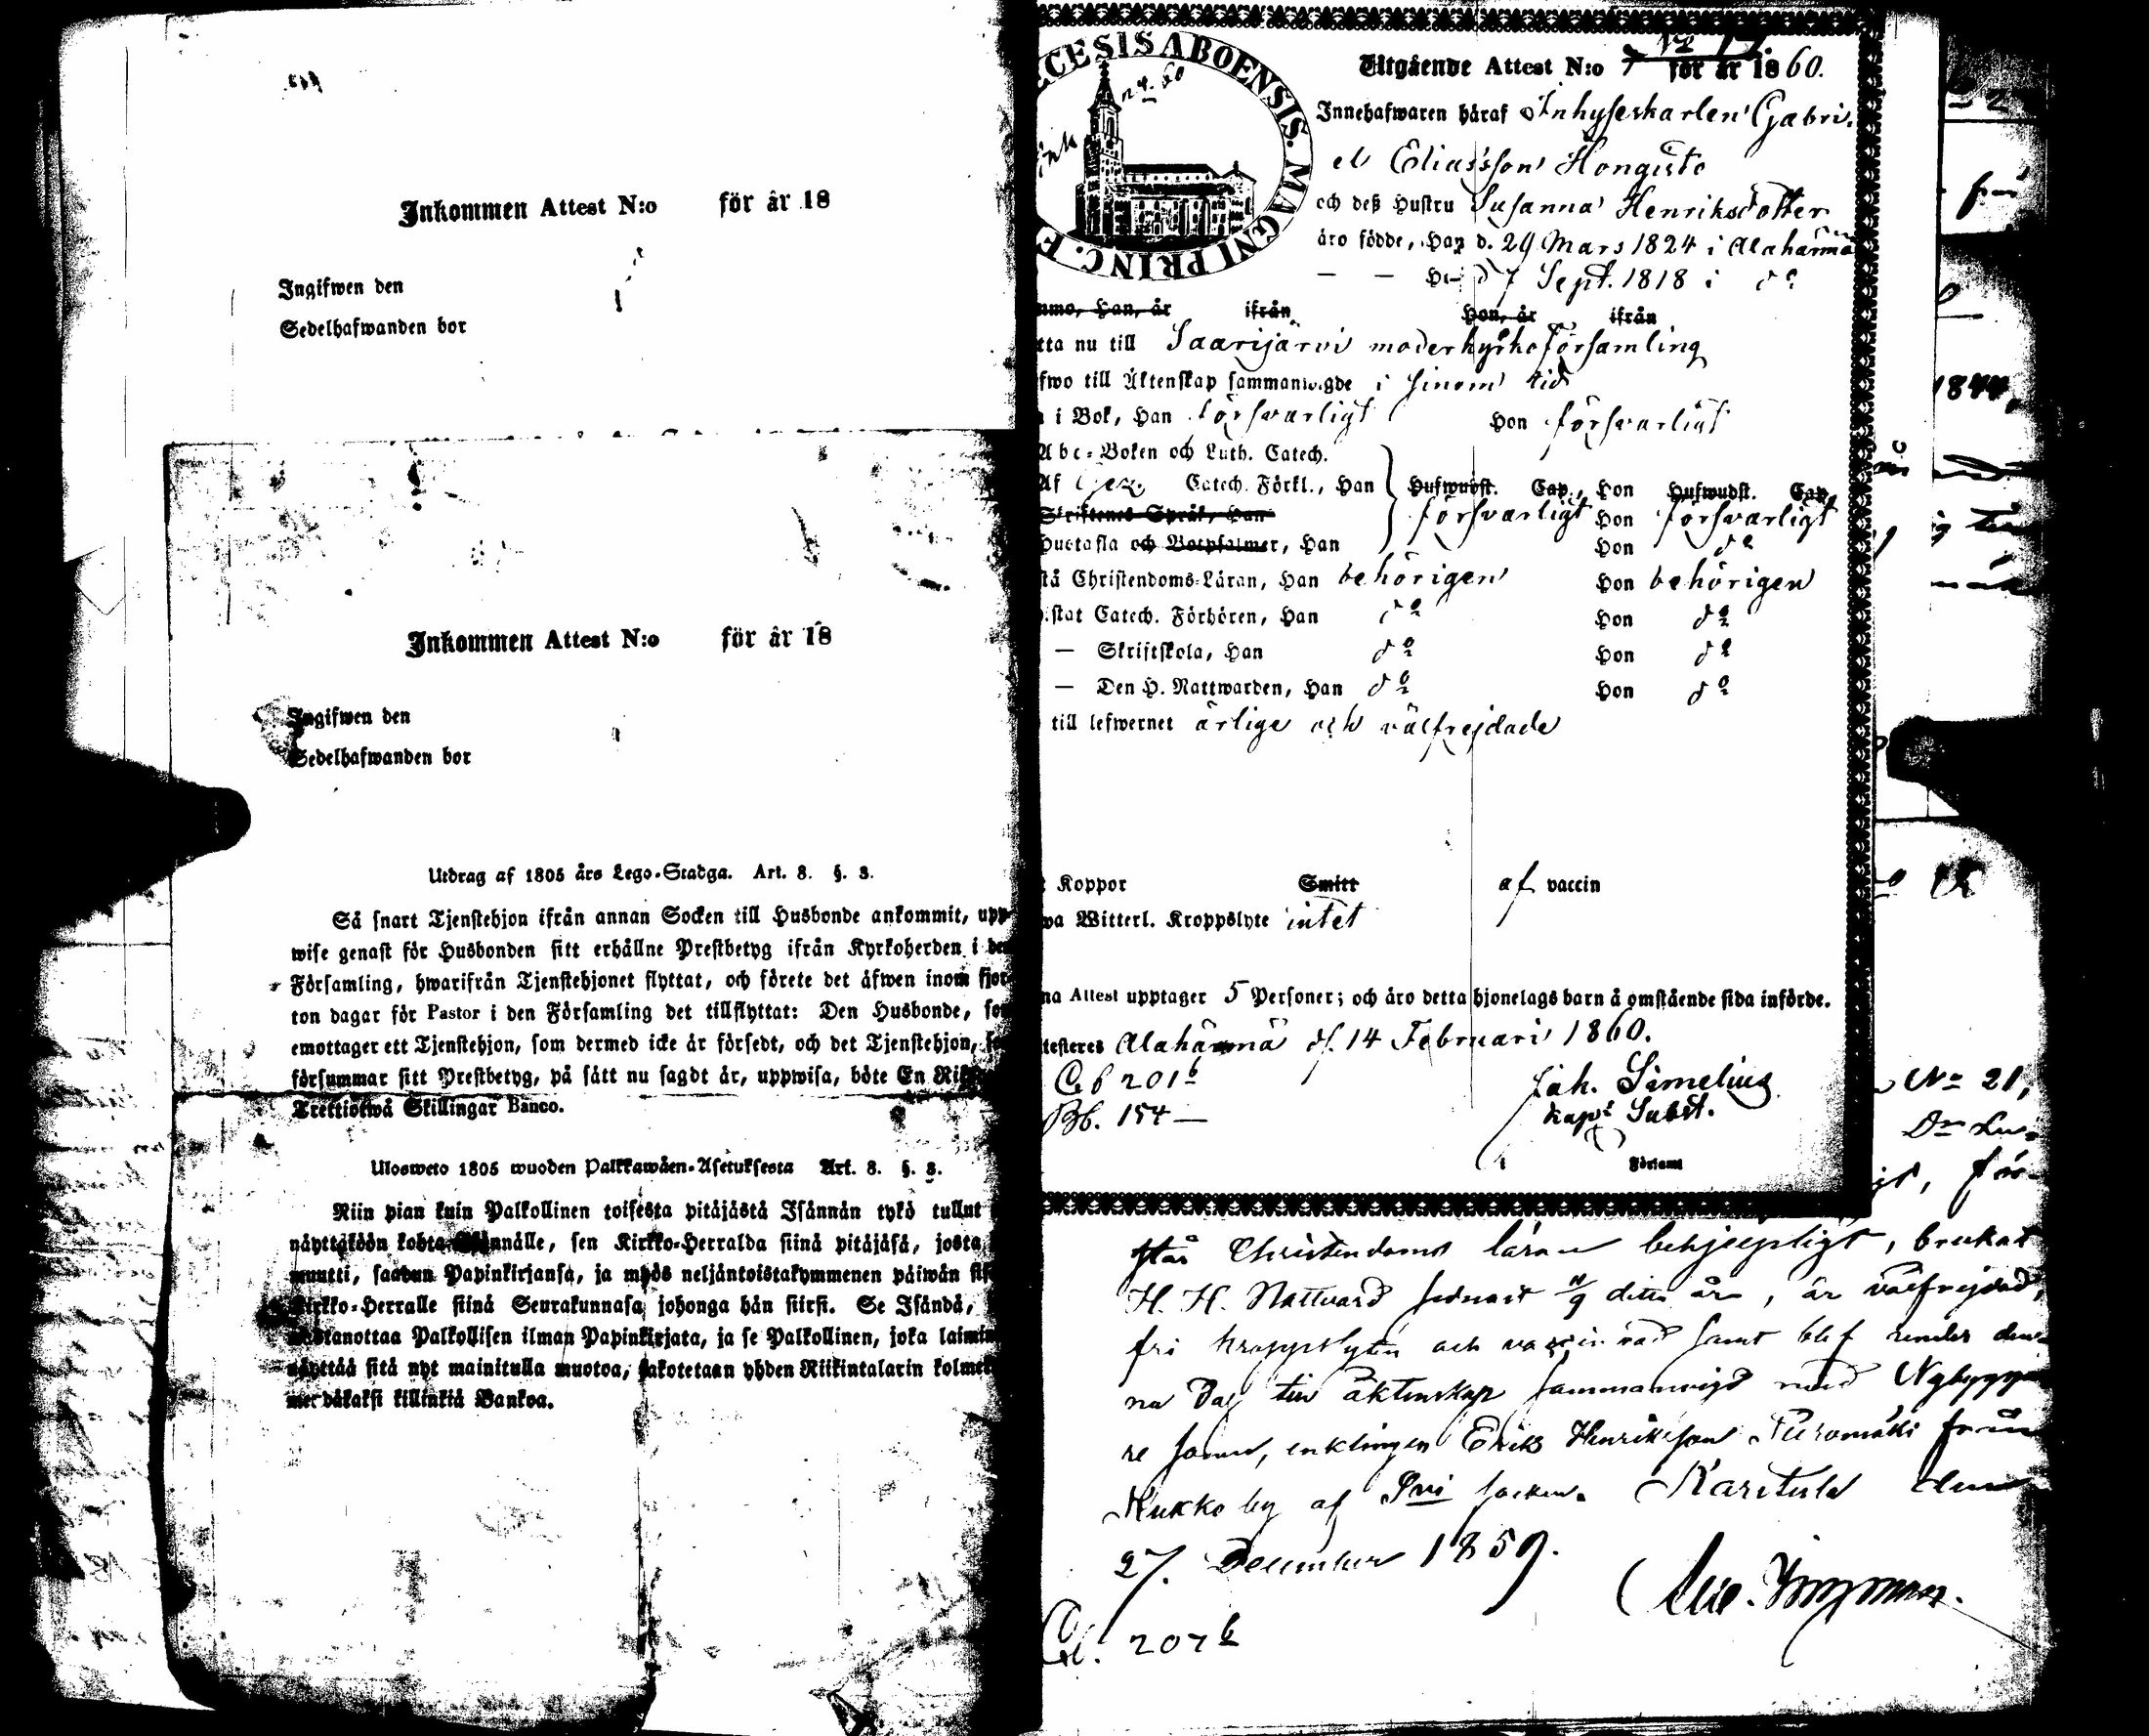 Inkommen Attest N:o för år 18
Ingifwen den
Sedelhafwanden bor
Inkommen Attest N:o för år 18
Ingifwen den
Sedelhafwanden bor
Utdrag af 1805 års Lego-Stadga. Art. 8. §. 3.
Så snart Tjenstehjon ifrån annan Socken till Husbonde ankommit, upp-
wise genast för Husbonden sitt erhållne Prestbetyg ifrån Kyrkoherden i den
Församling, hwarifrån Tjenstehjonet flyttat, och förete det äfwen inom fjor-
ton dagar för Pastor i den Församling det tillflyttat: Den Husbonde, som
emottager ett Tjenstehjon, som dermed icke är försedt, och det Tjenstehjon,
försummar sitt Prestbetyg, på sätt nu sagdt är, uppwisa, böte En
Trettiotwå Skillingar Banco.
Ulosweto 1805 wuoden Palkkawäen-Asetuksesta Art. 8. §. 3.
Niin pian kuin Palkollinen toisesta pitäjästä Isännän tykö tullut
näyttäköön kohta Isännälle, sen Kirkko-Herralda siinä pitäjäsä, josta
muutti, saadun Papinkirjansa, ja myös neljäntoistakymmenen päiwän
Kirkko-Herralle siinä Seurakunnasa, johonga hän siirsi. Se Isändä,
wastanottaa Palkollisen ilman Papinkirjata, ja se Palkollinen, joka
näyttää sitä nyt mainitulla muotoa, sakotetaan yhden Riikintalarin
mendäkaksi killinkiä Bankoa.
CESIS ABOENSIS. MAGNI PRINC. F
Utgående Attest N:o för år 1860.
Innehafwaren häraf Inhyseskarlen Gabri-
el Eliasson Hongisto
och deß Hustru Susanna Henriksdotter
äro födde, Han d. 29 Mars 1824 i Alahärmä
— — Hon d 7 Sept. 1818 i do
Han, år ifrån Hon, år ifrån
tta nu till Saarijärvi moderkyrkoförsamling
fwo till Äktenskap sammanwigde i sinom tid
i Bok, Han försvarligt Hon försvarligt
Abc-Boken och Luth. Catech.
Af Catech. Förkl., Han Hufwudst. Cap., Hon Hufwudst. Cap.
Skriftenes Språk, Han försvarligt Hon försvarligt
Hustafla och Botpsalmer, Han Hon do
stå Christendoms-Läran, Han behörigen Hon behörigen
istat Catech. Förhören, Han do Hon do
— Skriftskola, Han do Hon do
— Den H. Nattwarden, Han do Hon do
till lefwernet ärlige och välfrejdade
Koppor Smitt af vaccin
wa Witterl. Kroppslyte intet
na Attest upptager 5 Personer; och äro detta hjonelags barn å omstående sida införde.
testeres Alahärmä d. 14 Februari 1860.
Cb 201b
Bb. 154 —
Joh. Simelius
kapl Subst.
Församl
No 21,
står Christendoms läran behjelpligt, brukat
H. H. Nattvard senast 11/9 detta år, är välfrejdad,
fri kroppslyten och vaccinerad samt blef under den-
na dag till äktenskap sammanvigd med Nybygga-
re sonen, enklingen Erik Henriksson Puromäki från
Kukko by af Pvi socken. Karstula den
27. December 1859.
207b